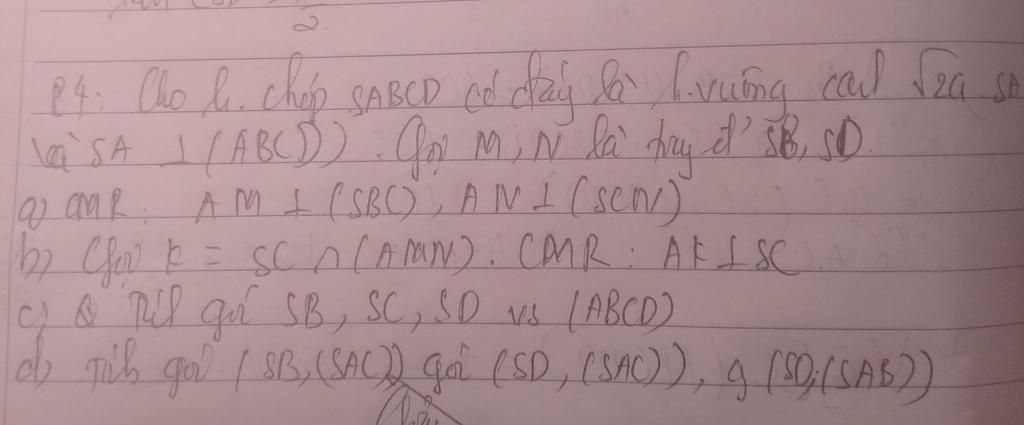 2.
R4: Cho h. chóp SABCD có đáy là h.vuông √2a SA
và SA ⊥ (ABCD). Gọi M, N là SB, SD.
a) CMR: AM ⊥ (SBC), AN ⊥ (SCN)
b) Gọi K = SC ∩ (AMN). CMR: AK ⊥ SC
c) góc SB, SC, SD vs (ABCD)
d) Tính góc (SB, (SAC)) góc (SD, (SAC)), g (SD; (SAB))